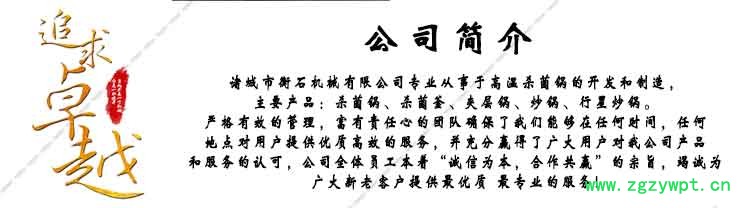 追求
卓越
公司简介
诸城市衡石机械有限公司专业从事于高温杀菌锅的开发和制造，
主要产品：杀菌锅、杀菌釜、夹层锅、炒锅、行星炒锅。
严格有效的管理，富有责任心的团队确保了我们能够在任何时间，任何
地点对用户提供优质高效的服务，并充分赢得了广大用户对我公司产品
和服务的认可，公司全体员工本着“诚信为本，合作共赢”的宗旨，竭诚为
广大新老客户提供最优质 最专业的服务！
www.zgzywpt.cn